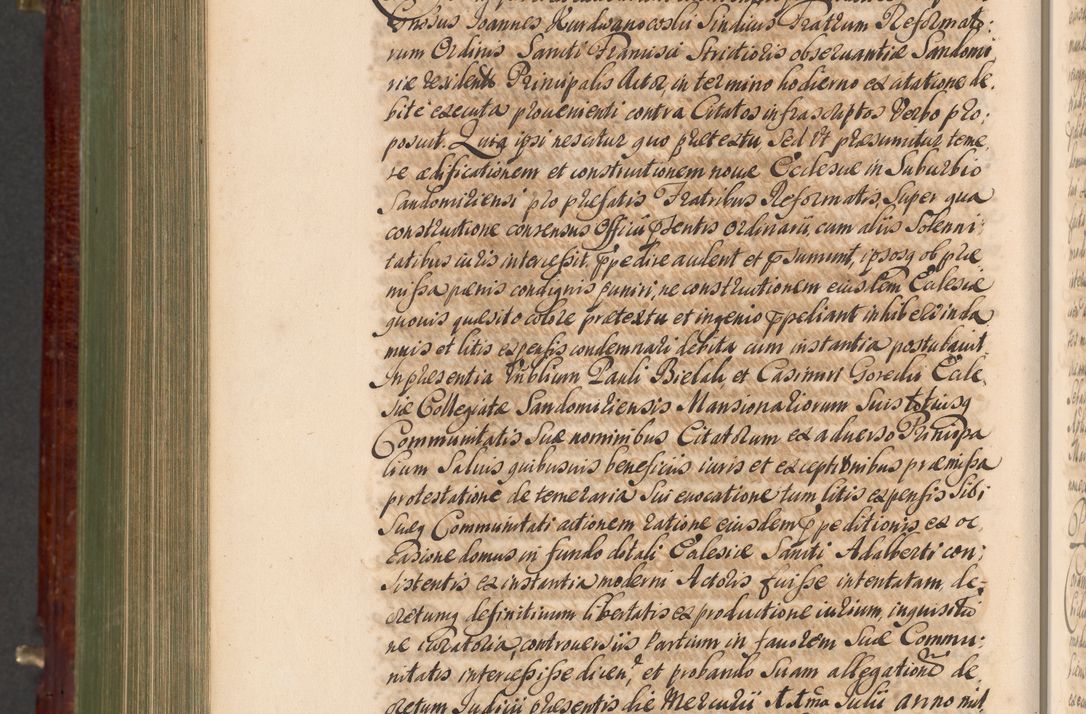 Consus Joannes Kurdwanocoslii Sindicus Fratrum Reformato:
rum Ordinis Sancti Francisci Strictioris obseruantiæ Sandomi
riæ residents Principalis Actor, in termino hodierno ex atatione de
bite executa prouenienti contra Citatos infrascriptos Verbo pro:
posuit. Quia ipsi nescitur quo prætextu, sed ut præsumitur teme
re ædificationem et constructionem nouæ Ecclesiæ in Suburbio
Sandomiriensi pro præfatis Fratribus Reformatis, Super qua
constructione consensus Officii pñsentis ordinarii, cum aliis Solenni
tatibus iuris intercessit, ppedire audent et psumunt, ipsosq ob præ
missa pænis condignis puniri, ne constructionem eiusdem Ecclesiæ
quouis quæsito colore prætextu et ingenio ppediant inhiberi in da
mnis et litis expensis condemnari debita cum instantia postulauit
In præsentia Vnblium Pauli Bielali, et Casimiri Goredii Eccle
siæ Collegiatæ Sandomiriensis Mansionariorum Suis totiusq
Communitatis Suæ nominibus Citatorum ex aduerso Principa
lium Saluis quibusuis beneficiis iuris et exceptionibus præmissa
protestatione de temeraria Sui euocatione tum litis expensis Sibi
Suæq Communitati actionem ratione eiusdem ppeditionis ex oc
casione domus in fundo dotali Ecclesiæ Sancti Adalberti con:
sistentis ex instantia moderni Actoris fuisse intentatam, de-
cretumq definitiuum libertatis ex productione iurium, inquisitio
ne iuratoria, controuersiis Partium in fauorem Suæ Commu:
nitatis intercessisse dicen, et probando Suam allegationem de
cretum Judicii præsentis die Mercurii Julii anno mil